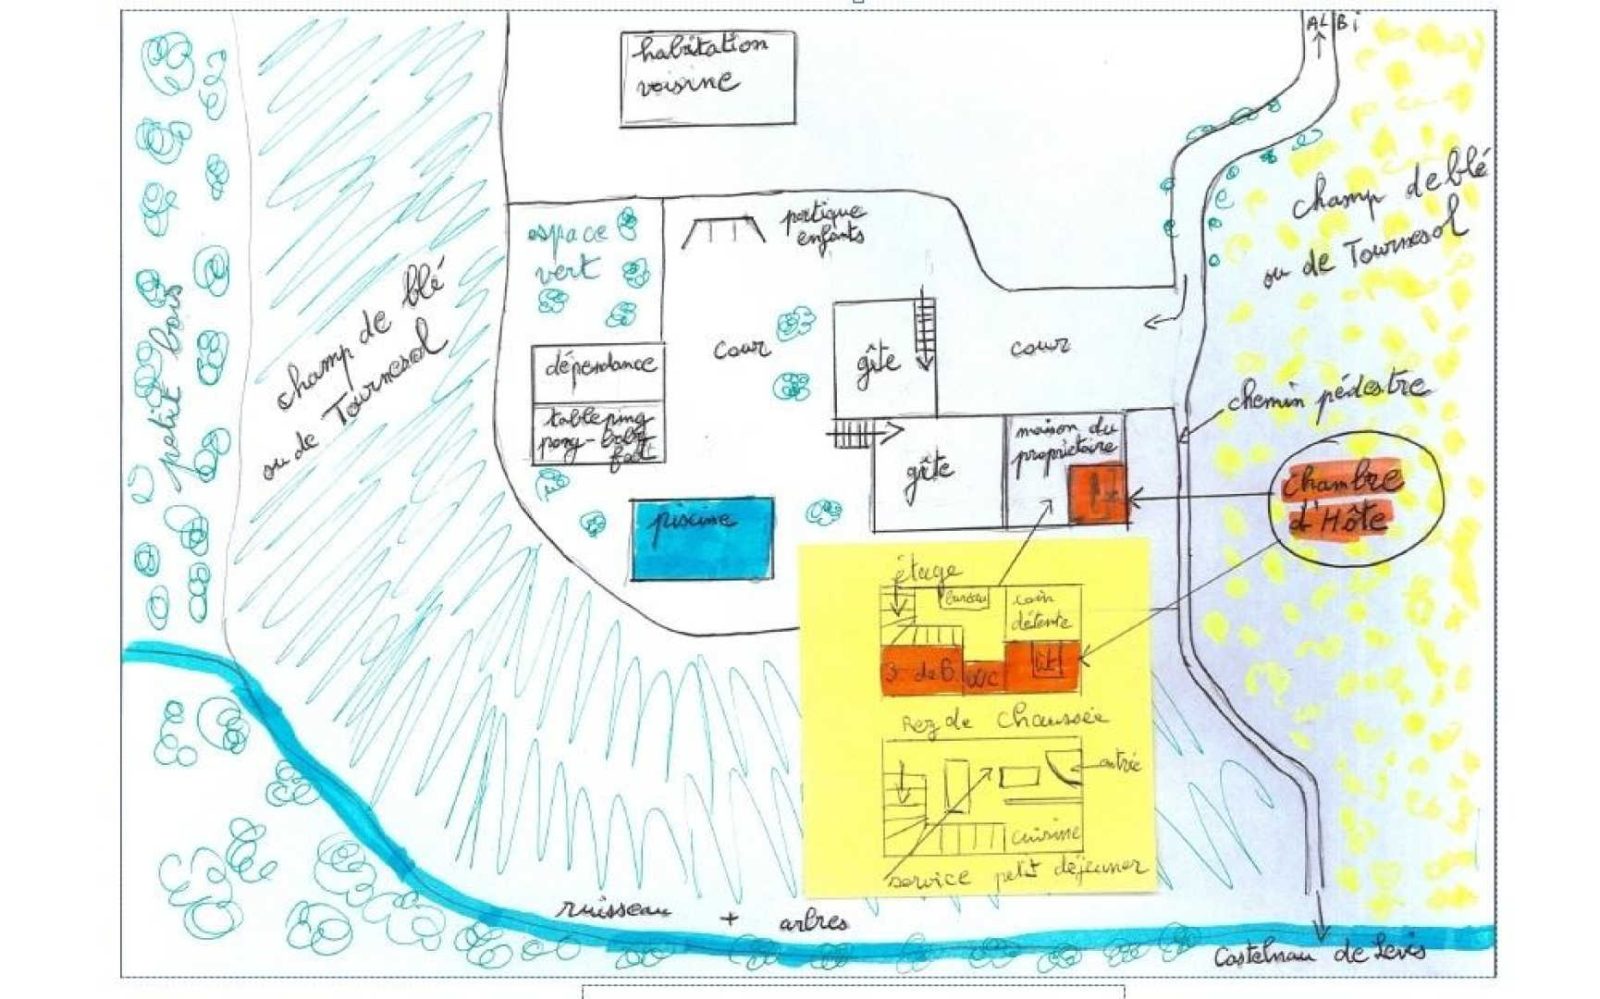 ALBi
habitation
voisine
champ de blé
ou de Tournesol
portique
enfants
espace
vert
petit bois
champ de blé
ou de Tournesol
cour
gîte
cour
dépendance
chemin pédestre
table ping
pong-baby
foot
maison du
propriétaire
gîte
chambre
d'Hôte
piscine
étage
bureau
coin
détente
S de B
WC
lit
Rez de Chaussée
entrée
cuisine
service petit déjeuner
ruisseau + arbres
Castelnau de Levis